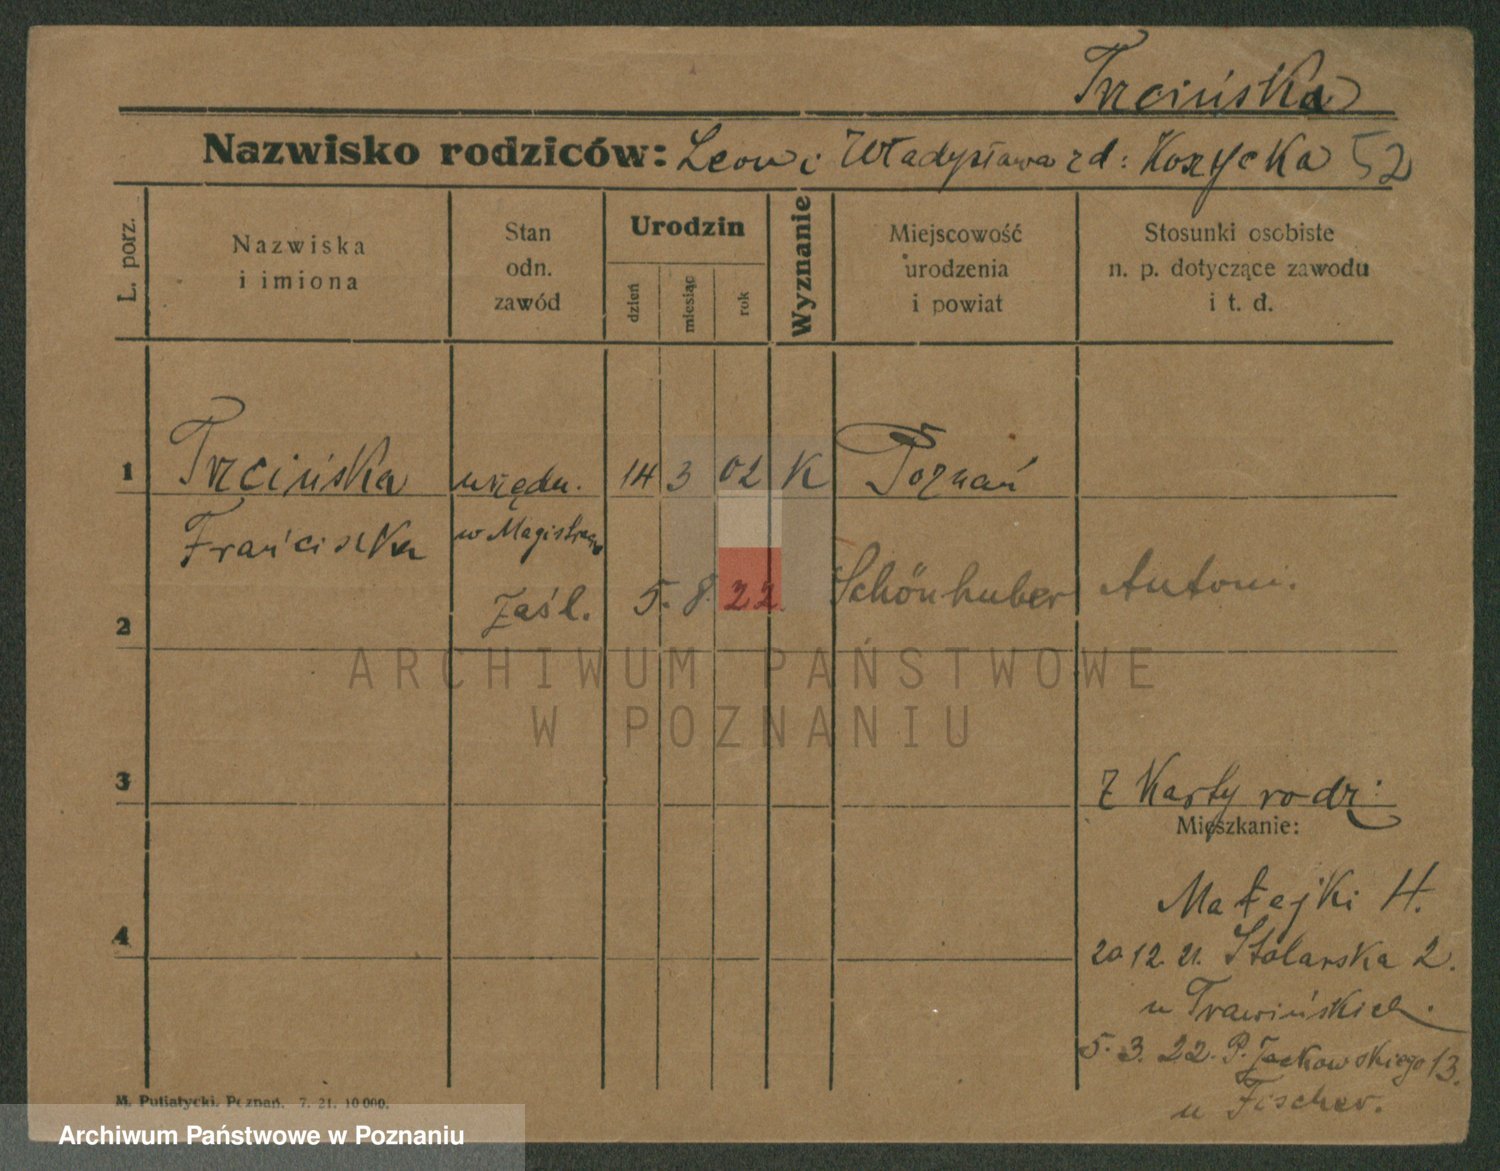 Trzcińska
Nazwisko rodziców: Leon i Władysława zd: Koszycka 52
L. porz.
Nazwiska i imiona
Stan odn. zawód
Urodzin
dzień
miesiąc
rok
Wyznanie
Miejscowość urodzenia i powiat
Stosunki osobiste n. p. dotyczące zawodu i t. d.
1 Trzcińska urzędn. 14 3 02 K Poznań
Franciszka w Magistracie
2 zaśl. 5. 8. 22. Schönhuber Antoni.
ARCHIWUM PAŃSTWOWE
W POZNANIU
3 Z Karty rodz:
Mieszkanie:
Matejki 4.
4 20 12. 21. Stolarska 2.
u Trawińskich.
5. 3. 22. P. Jackowskiego 13.
u Fischer.
M. Putiatycki, Poznań. 7. 21. 10000.
Archiwum Państwowe w Poznaniu